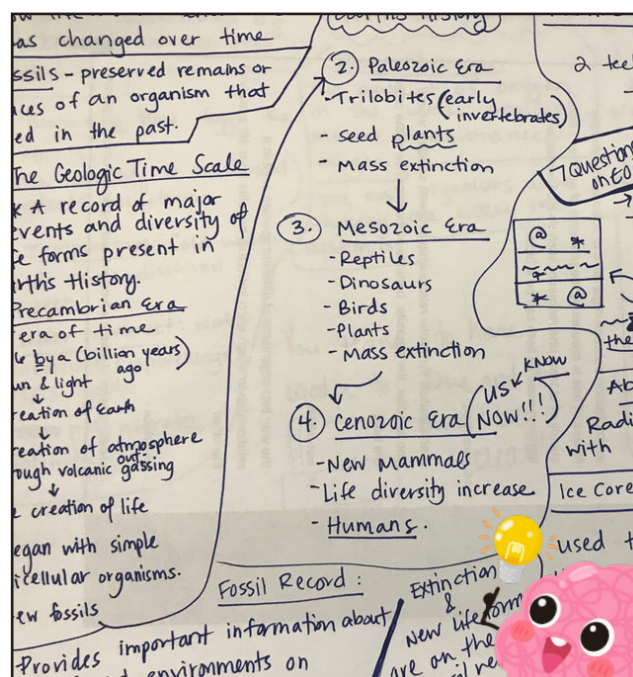 as changed over time
ssils - preserved remains or
ces of an organism that
ed in the past.
The Geologic Time Scale
* A record of major
events and diversity of
fe forms present in
rth's History.
Precambrian Era
era of time
bya (billion years)
ago
un & light
reation of Earth
reation of atmosphere
ough volcanic out-gassing
creation of life
egan with simple
icellular organisms.
ew fossils
2. Paleozoic Era
- Trilobites (early
invertebrates)
- seed plants
- Mass extinction
3. Mesozoic Era
- Reptiles
- Dinosaurs
- Birds
- Plants
- Mass extinction
4. Cenozoic Era (US KNOW
NOW!!!)
- New Mammals
- Life diversity increase
- Humans.
Fossil Record:
Provides important information about
environments on
Extinction
&
New life form
are on the
2 tee
7 Question
on EO
@ *
* @
the
Ab
Radi
with
Ice Core
used t